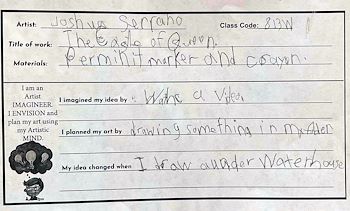 Artist: Joshua Serrano Class Code: 813W
Title of work: The of Queen.
Materials: Permihit marker and crayon.
I am an
Artist
IMAGINEER
I ENVISION and
plan my art using
my Artistic
MIND.
I imagined my idea by : Wathc a Video
I planned my art by : drawing something in my
My idea changed when : I draw a under Waterhouse